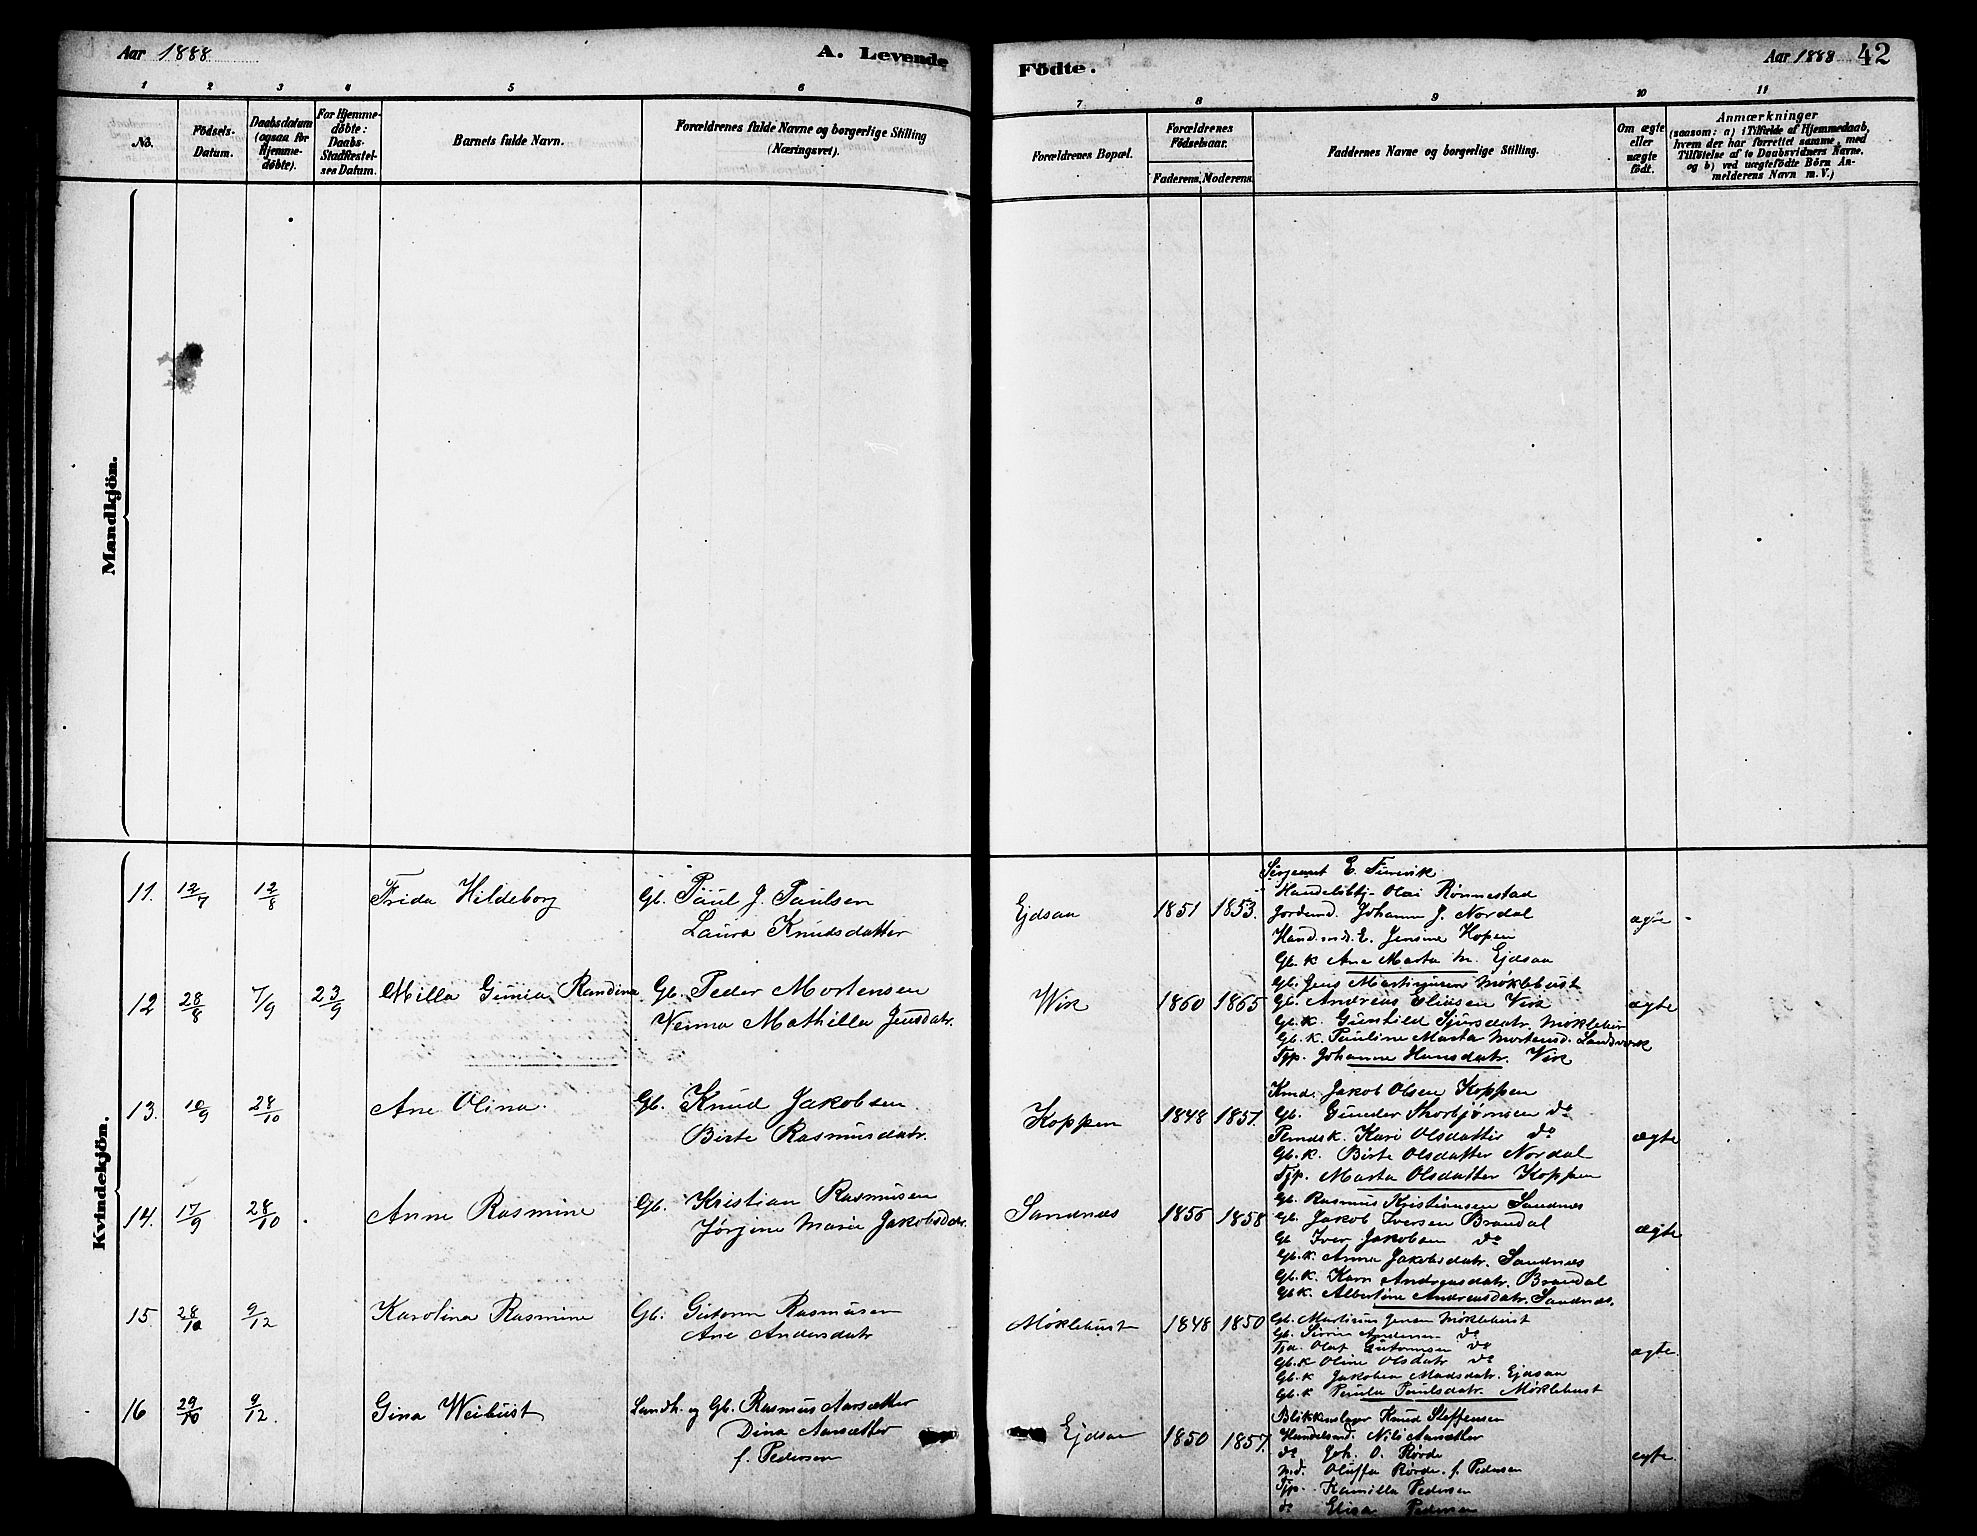 Aar 1888
A. Levende
Födte.
Aar 1888 42
1 2 3 4 5 6 7 8 9 10 11
No.
Födsels-
Datum.
Daabsdatum
(ogsaa for
Hjemme-
døbte).
For Hjemme-
døbte:
Daabs-
Stadfæstel-
ses Datum.
Barnets fulde Navn.
Forældrenes fulde Navne og borgerlige Stilling
(Næringsvei).
Forældrenes Bopæl.
Forældrenes
Födselsaar.
Faderens. Moderens.
Faddernes Navne og borgerlige Stilling.
Om ægte
eller
uægte
födt.
Anmærkninger
(saasom: a) i Tilfælde af Hjemmedaab,
hvem der har forrettet samme, med
Tilföielse af to Daabsvidners Navne.
og b) ved uægtefödte Börn An-
melderens Navn m.V.)
Mandkjön.
Kvindekjön.
11. 12/7 12/8 Frida Hildeborg
Gb. Paul J. Paulsen
Laura Knudsdatter
Ejdsaa 1851 1853.
Sergeant E. Furevik
Handelsbtj. Olai Rønnestad
Jordemd. Johanne J. Nordal
Hand.md. E. Jensine Hopen
Gb. K Ane Marta M. Ejdsaa
ægte
12 28/8 7/9 23/9 Milla Gunia Randina
Gb. Peder Mortensen
Weima Mathilla Jensdatr.
Wik 1860 1865
Gb. Jens Martinusen Møklebust
Gb. Andreas Eliasen Wik
Gb. K. Gunhild Sjursdatr. Møklebust
Gb. K. Pauline Marta Mortensd. Landværk
Tjp. Johanne Hansdatr. Wik
ægte
13. 10/9 28/10 Ane Olina
Gb. Knud Jakobsen
Birte Rasmusdatr.
Koppen 1848 1857.
Kmd. Jakob Olsen Koppen
Gb. Gunder Thorbjørnsen do
Kari Olsdatter do
Gb. K. Birte Olsdatter Nordal
Tjp. Marta Olsdatter Koppen
ægte
14. 17/9 28/10 Anne Rasmine
Gb. Kristian Rasmusen
Jørgine Marie Jakobsdatr.
Sandnæs 1856 1858
Gb. Rasmus Kristiansen Sandnæs
Gb. Jakob Iversen Brandal
Gb Iver Jakobsen do
Gb. K. Anna Jakobsdatr. Sandnæs
Gb. K. Karn Andreasdatr. Brandal
Gb K. Albertine Andreasdatr. Sandnæs.
ægte
15. 28/10 9/12 Karolina Rasmine
Gb. Gutorm Rasmusen
Ane Andersdatr
Møklebust 1848 1850
Gb. Martinus Jensen Møklebust
Gb. Andersen do
Olaf Gutormsen do
Gb. K Oline Olsdatr do
Gb. K Jakobea Madsdatr. Ejdsaa
Gb. K Paulsdatr. Møklebust
ægte.
16 29/10 9/12. Gina Weibust
Landh. og Gb. Rasmus Aarsætter
Dina Aarsætter
f. Pedersen
Ejdsaa 1850 1857.
Blikkenslager Knud Steffensen
Handelsmd. Nils Aarsætter
do Joh. O. Rørde
Md. Oluffa Rørde f. Pedersen
Tjp. Kamilla Pedersen
do Elisa Pedersen
ægte.